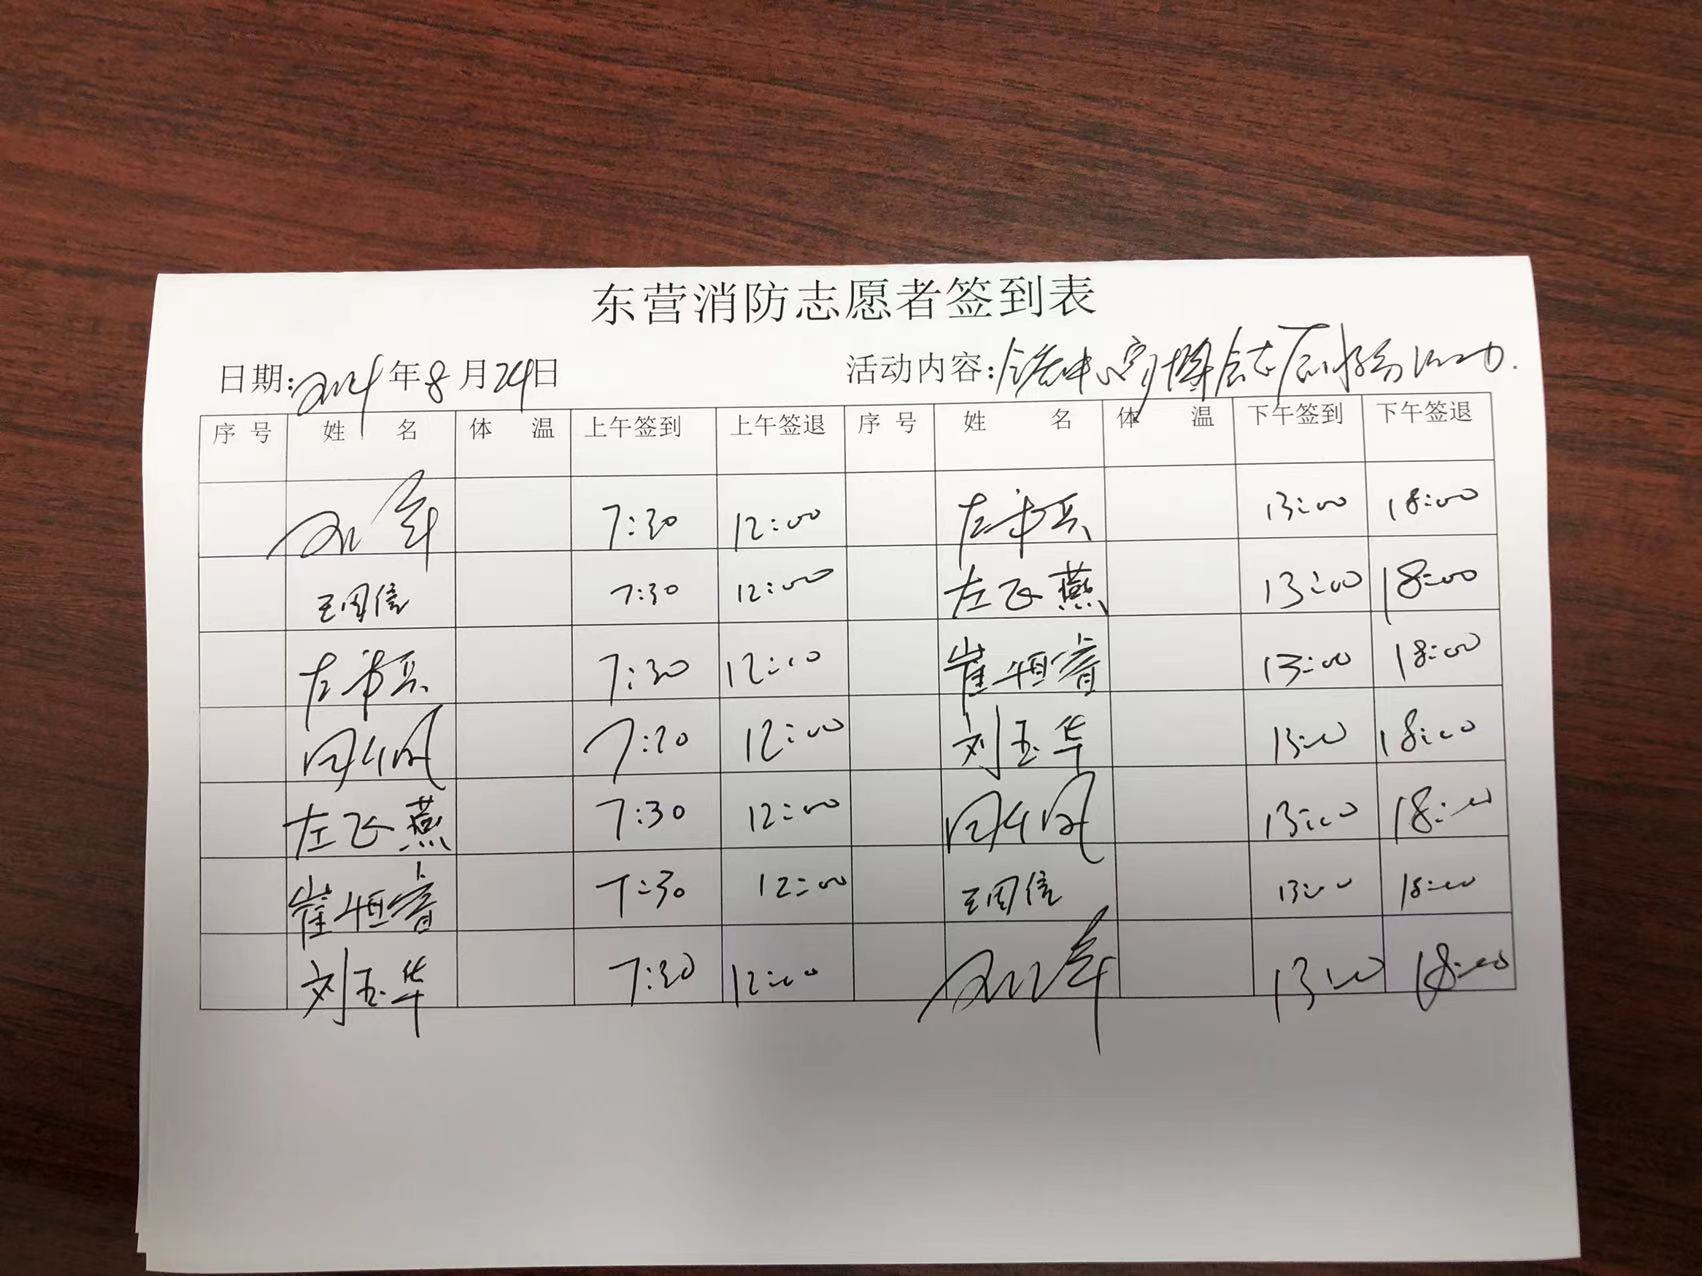 东营消防志愿者签到表
日期:2024年8月24日 活动内容:会展中心 博会志愿服务活动.
序号 姓名 体温 上午签到 上午签退 序号 姓名 体温 下午签到 下午签退
7:30 12:00 左希兵 13:00 18:00
王国信 7:30 12:00 左飞燕 13:00 18:00
左希兵 7:30 12:00 崔恒睿 13:00 18:00
7:20 12:00 刘玉华 13:00 18:00
左飞燕 7:30 12:00 13:00 18:00
崔恒睿 7:30 12:00 王国信 13:00 18:00
刘玉华 7:30 12:00 13:00 18:00